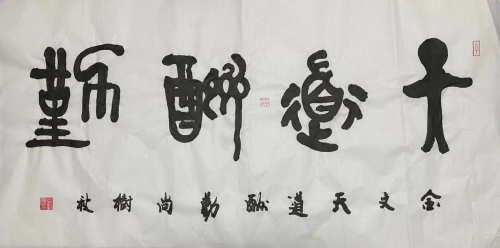 天道酬勤
金文天道酬勤尚樹社